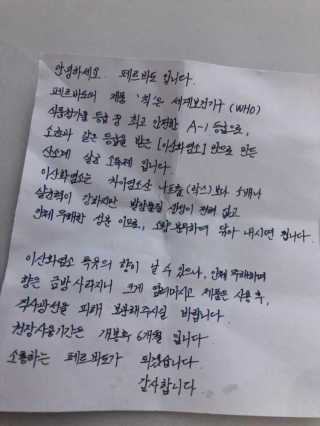 안녕하세요. 페르바도 입니다.
페르바도의 제품 '칙'은 세계보건기구 (WHO)
식품첨가물 등급 중 최고 안전한 A-1 등급으로,
소금과 같은 등급을 받은 [이산화염소] 만으로 만든
산소계 살균 소독제 입니다.
이산화염소는 차아염소산 나트륨 (락스) 보다 5배나
살균력이 강하지만 발암물질 생성이 전혀 없고
인체 무해한 성분 이므로, 소량 분무하며 닦아 내시면 됩니다.
이산화염소 특유의 향이 날 수 있으나, 인체 무해하며
향은 금방 사라지니 크게 염려마시고 제품은 사용 후,
직사광선을 피해 보관해주시길 바랍니다.
권장사용기간은 개봉후 6개월 입니다
소통하는 페르바도가 되겠습니다.
감사합니다.